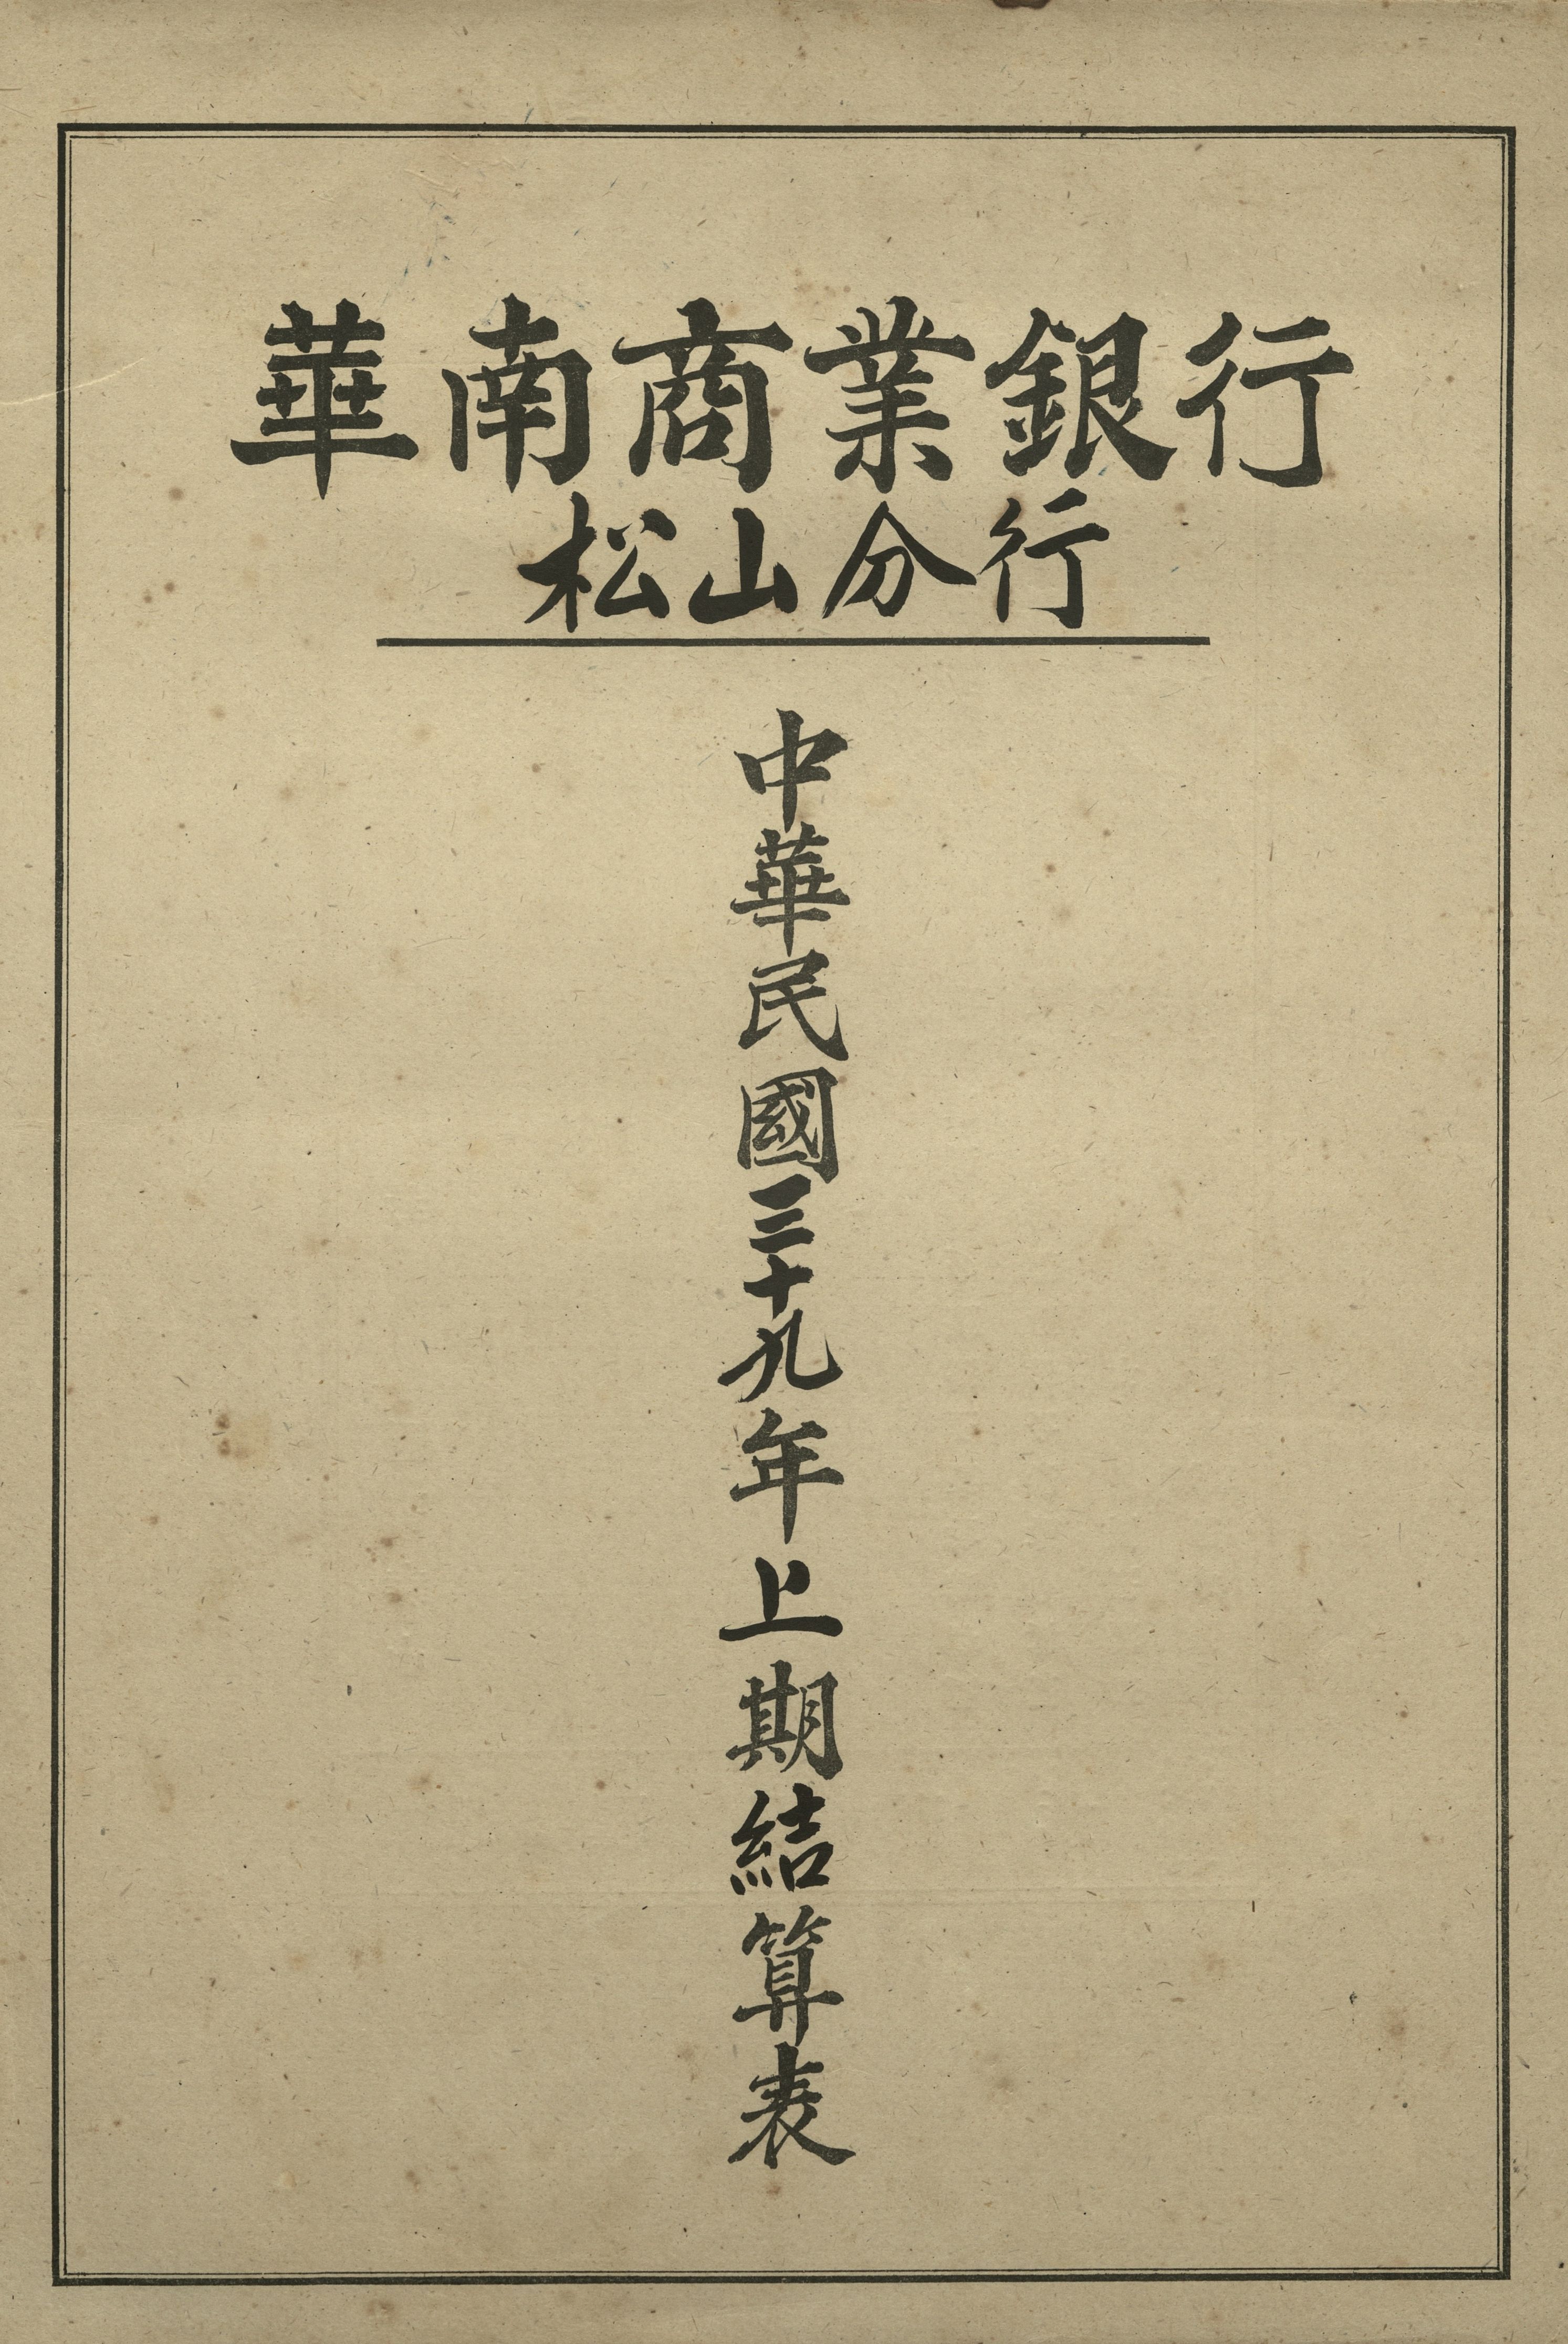 華南商業銀行
松山分行
中華民國三十九年上期結算表